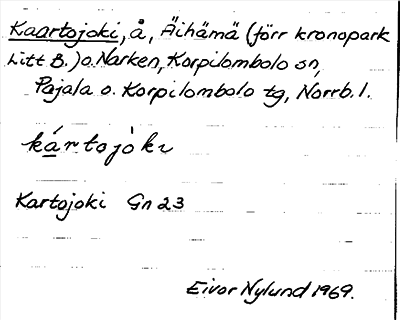 Kaartojoki, å, Äihämä (förr kronopark
Litt B.) o. Narken, Korpilombolo sn,
Pajala o. Korpilombolo tg, Norrb. l.
kártojòki
Kartojoki Gn 23
Eivor Nylund 1969.